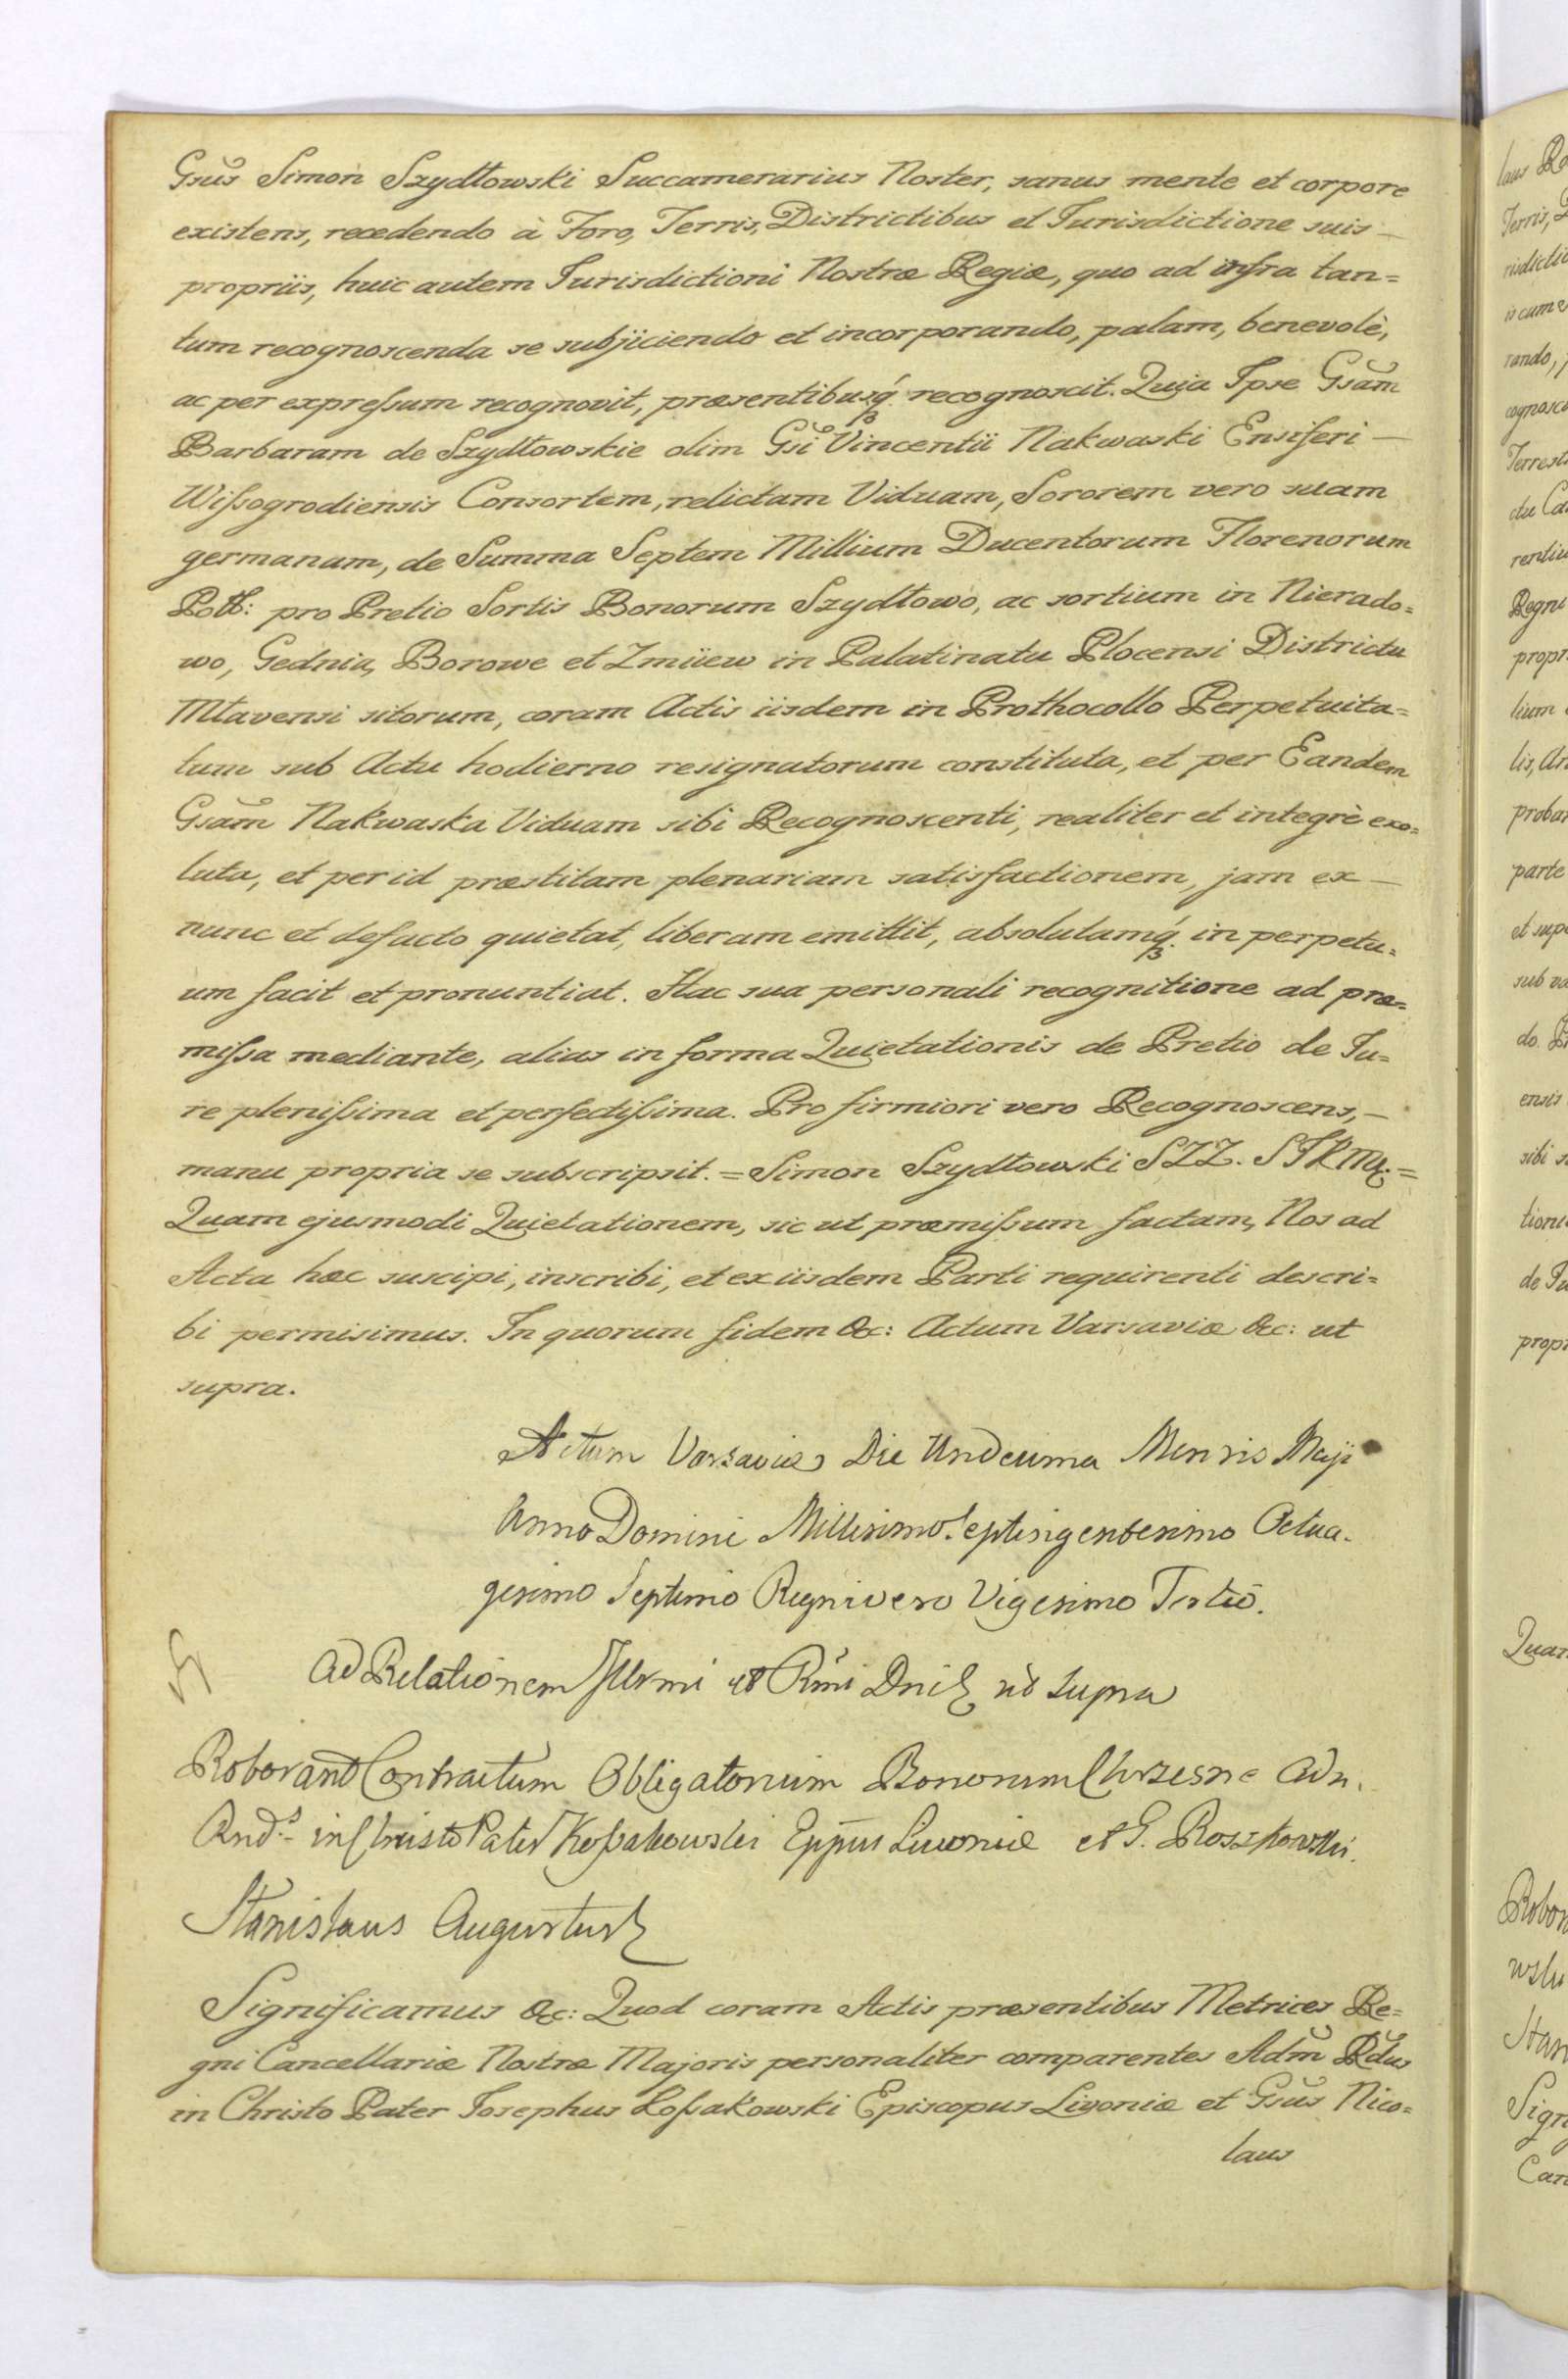 Gsūs Simon Szydłowski Succamerarius Noster, sanus mente et corpore
existens, recedendo à Foro, Terris, Districtibus et Jurisdictione suis —
propriis, huic autem Jurisdictioni Nostræ Regiæ, quo ad infra tan=
tum recognoscenda se subjiciendo et incorporando, palam, benevolè,
ac per expreſsum recognovit, præsentibusq́ recognoscit. Quia Ipse Gsām
Barbaram de Szydłowskie olim Gsī Vincentii Nakwaski Ensiferi —
Wiſsogrodiensis Consortem, relictam Viduam, Sororem vero suam
germanam, de Summa Septem Millium Ducentorum Florenorum
Poll: pro Pretio Sortis Bonorum Szydłowo, ac sortium in Nierado=
wo, Gednia, Borowe et Zmiiew in Palatinatu Plocensi Districtu
Młavensi sitorum, coram Actis iisdem in Prothocollo Perpetuita=
tum sub Actu hodierno resignatorum constituta, et per Eandem
Gsām Nakwaska Viduam sibi Recognoscenti, realiter et integrè exo=
luta, et per id præstitam plenariam satisfactionem, jam ex —
nunc et defacto quietat, liberam emittit, absolutamq́ in perpetu=
um facit et pronuntiat. Hac sua personali recognitione ad præ=
miſsa mediante, alias in forma Quietationis de Pretio de Ju=
re pleniſsima et perfectiſsima. Pro firmiori vero Recognoscens, —
manu propria se subscripsit. = Simon Szydłowski SZZ. =
Quam ejusmodi Quietationem, sic ut præmiſsum factam, Nos ad
Acta hæc suscipi, inscribi, et ex iisdem Parti requirenti descri=
bi permisimus. In quorum fidem &c: Actum Varsaviæ &c: ut
supra.
Actum Varsaviæ Die Undecima Mensis Maji
Anno Domini Millesimo Septisigentesimo Octua-
gesimo Septimo Regni vero Vigesimo Tertiō.
Ad Relationem Illrmi et Rm̄i Dni ut supra
Roborant Contractum Obligatorium Bonorum Chrzesne Adn.
Rnd.s in Christo Pater Koſsakowski Epp̄us Livoniæ et G. Roszkowski.
Stanislaus Augustus
Significamus &c: Quod coram Actis præsentibus Metrices Re=
gni Cancellariæ Nostræ Majoris personaliter comparentes Adm̄ Rd̄us
in Christo Pater Josephus Koſsakowski Episcopus Livoniæ et Gsūs Nico=
laus